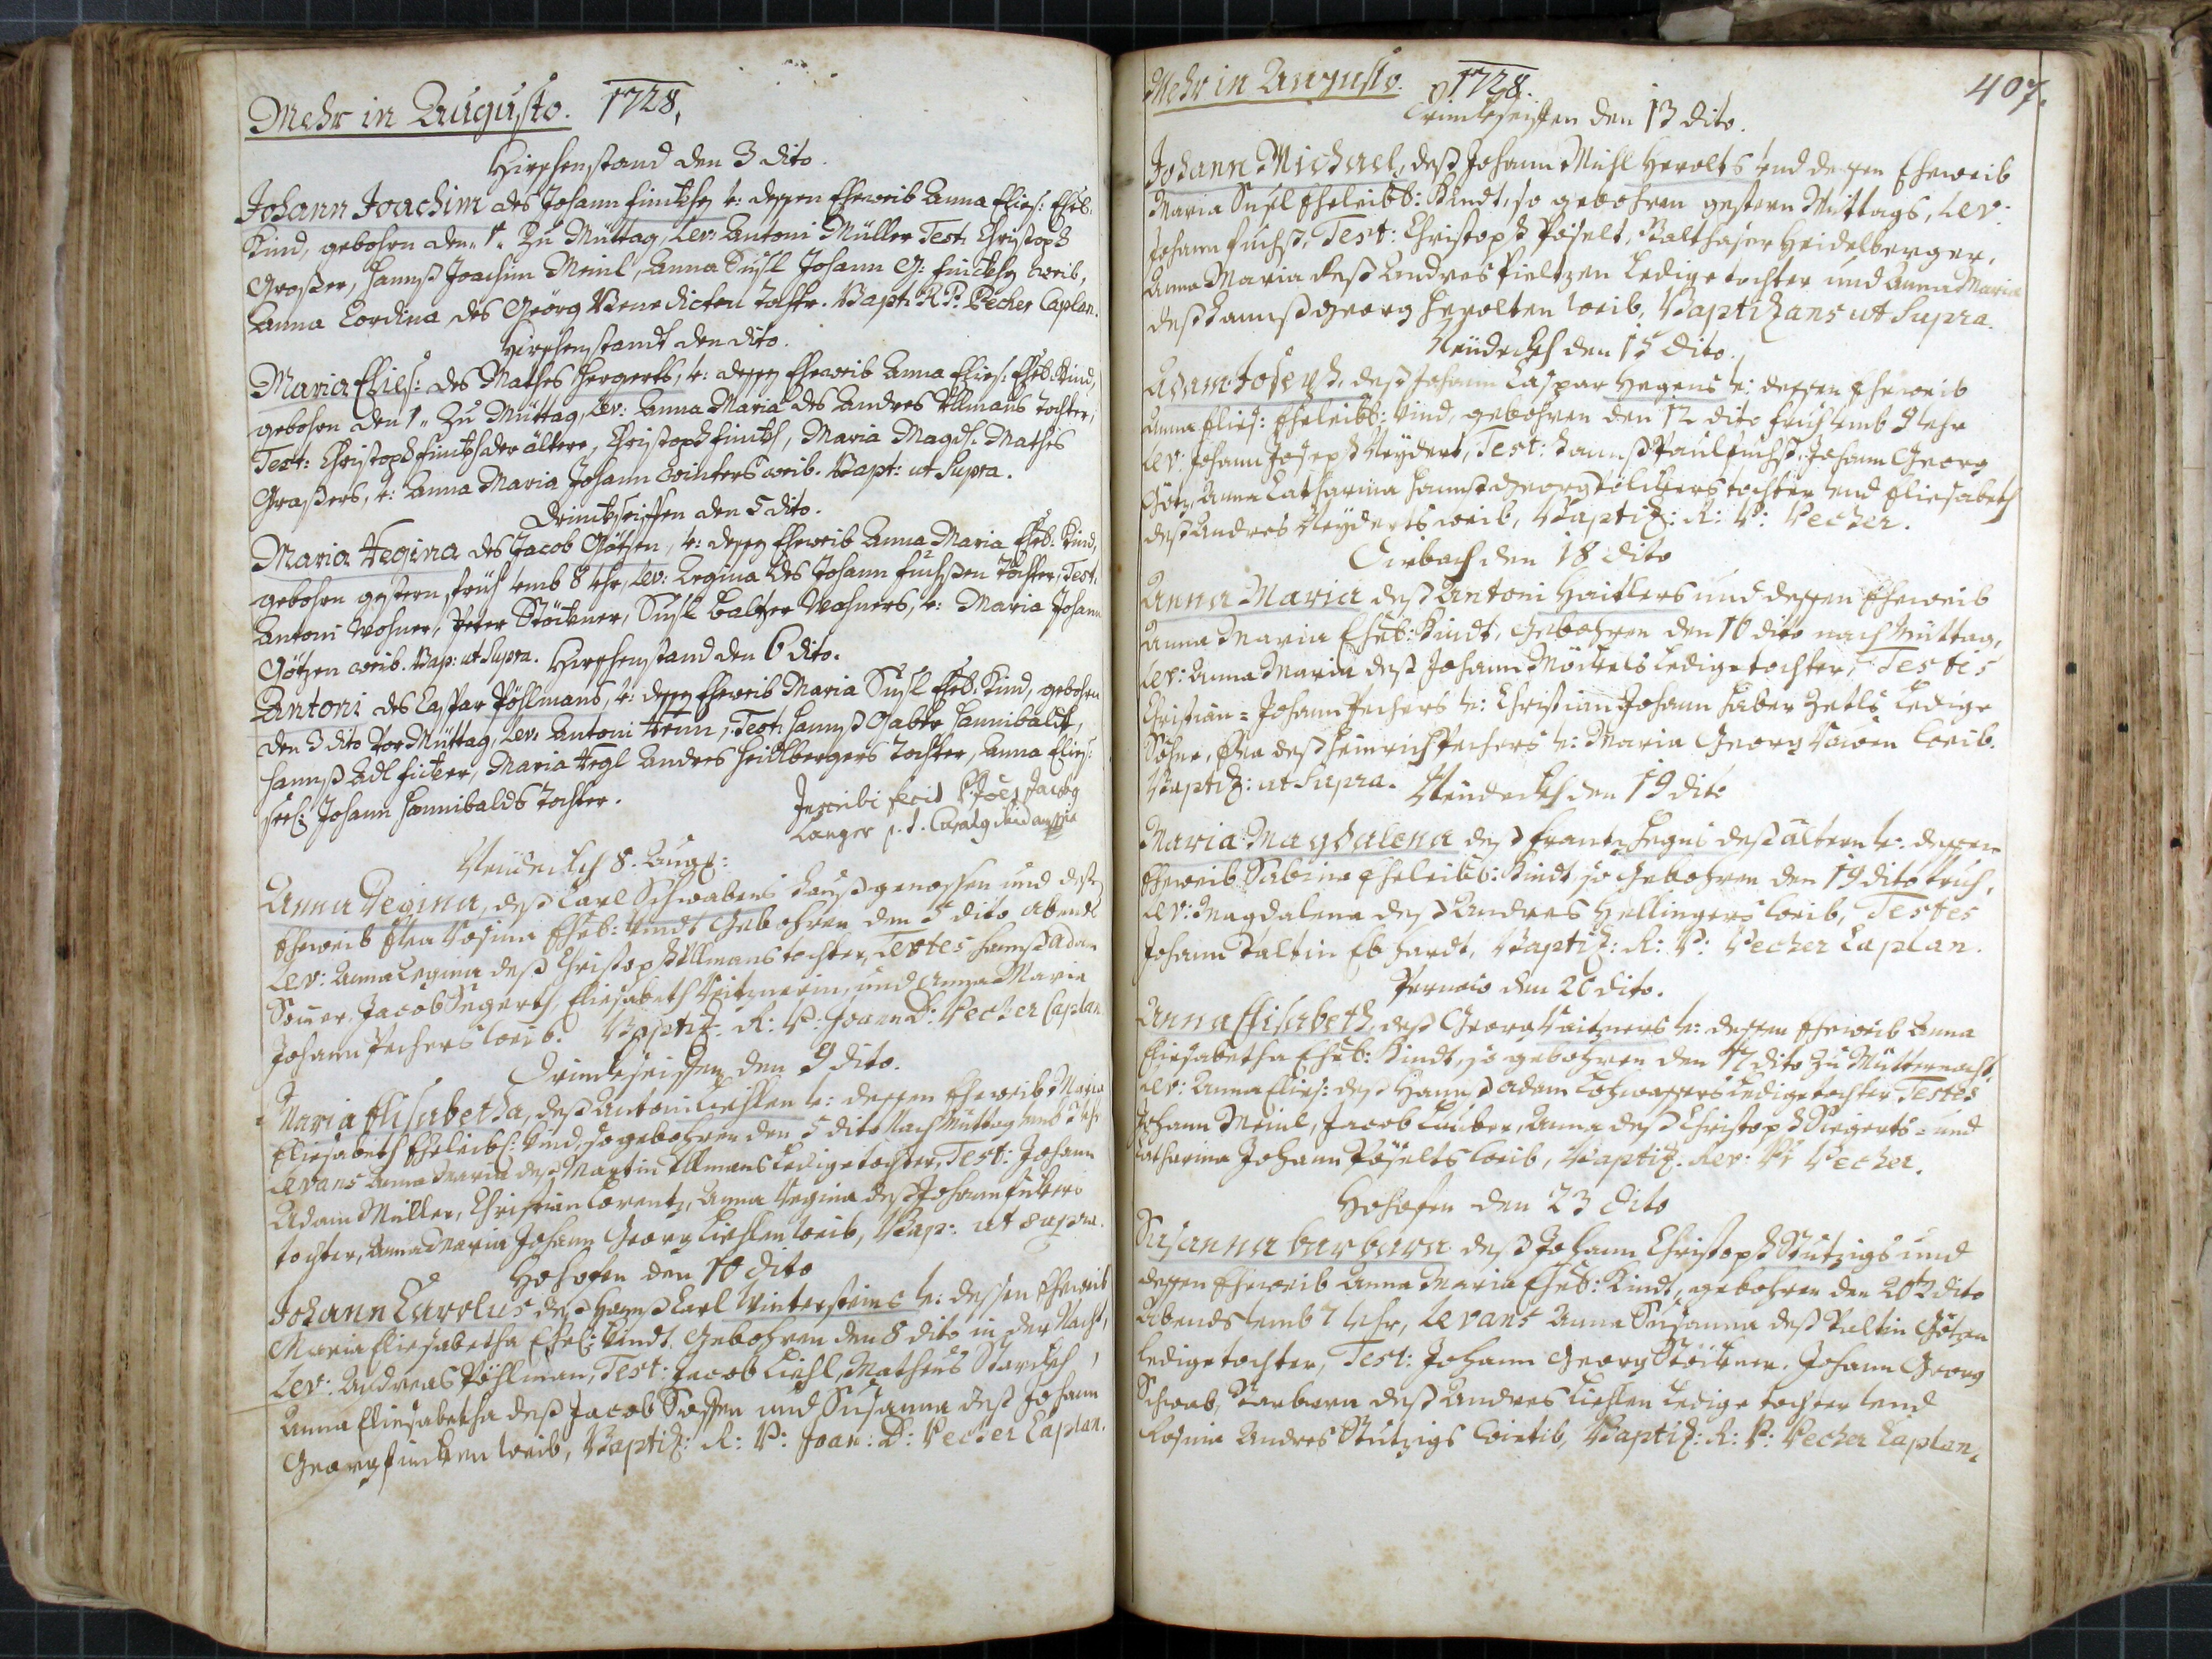 Mehr in Augusto. 1728.
Hirschenstand den 3 dito.
Johann Joachim des Johann Fincken u: dessen Eheweib Anna Elies: Eheb.
Kind, gebohren den 1 zu Müttag, Lev: Antoni Müller Test: Christoph
Großer, Hannß Joachim Meinl, Anna Susl Johann G: Fincken weib,
Anna Cordina des Geörg Benedicten Tochter. Bapt: R. P: Pecher Caplan.
Hirschenstandt den dito.
Maria Elies: des Mathes Hergerts, u: dessen Eheweib Anna Elies: Eheb: Kind,
gebohrn den 1 zu Müttag, Lev: Anna Maria des Andres Ullmans tochter,
Test: Christoph Finckh der ältere, Christoph Finckh, Maria Magdl: Mathes
Graßers, u: Anna Maria Johann Winters weib. Bapt: ut Supra.
Drinckseiffen den 5 dito.
Maria Regina des Jacob Götzen, u: dessen Eheweib Anna Maria Eheb: Kind,
gebohrn gestern früh umb 8 Uhr, Lev: Regina des Johann Fuchßen Tochter, Test:
Antoni Wohner, Peter Stöckner, Susl Baltzer Wohners, u: Maria Johann
Götzen weib. Bap: ut Supra. Hirschenstand den 6 dito.
Antoni des Caspar Pöhlmans, u: dessen Eheweib Maria Susl Eheb: Kind, gebohrn
den 3 dito vor Müttag, Lev: Antoni Henn, Test: Hannß Hannibaldt,
Hannß Adl Ficker, Maria Regl Andres Heidlbergers Tochter, Anna Elies:
Johann Hannibalds Tochter.
Inscribi fecit Jacob
Langer
Neüdeckh 8. Aug:
Anna Regina, deß Carl Schwabens Haußgenossen und deßen
Eheweib Eva Rosina Eheb: Kindt Gebohren den 5 dito abends
Lev: Anna Regina deß Christoph Ullmans tochter, Testes Hannß Adam
Jacob Segerth, Eliesabeth und Anna Maria
Johann Pechers weib. Baptiz: R: P: Joann D: Pecher Caplan
Drinckseissen den 9 dito.
Maria Elisabetha, deß Antoni Liehlen u: dessen Eheweib Maria
Eliesabeth Eheleibs: Kind, so gebohren den 5 dito Nach Müttag umb 3 Uhr
levans Anna Maria deß Martin Ullmans Ledige tochter, Test: Johann
Adam Müller, Christian Lorentz, Anna Regina deß Johann Fickers
tochter, Anna Maria Johann Georg Liehlen weib, Bap: ut Supra.
Hohofen den 10 dito
Johann Carolus deß Hannß Carl Wintersteins u: dessen Eheweib
Maria Eliesabetha Ehel: Kindt Gebohren den 8 dito in der Nacht,
Lev: Andreas Pöhlman, Test: Jacob Liehl, Matheus Starckh,
Anna Eliesabetha deß Jacob und Susanna deß Johann
Georg Fincken weib, Baptiz: R: P: Joan: D: Pecher Caplan.
Mehr in Augusto. 1728. 407.
Trinckseiffen den 13 dito.
Johann Michael, deß Johann Michl Herolts und dessen Eheweib
Maria Susl Eheleibb: Kindt, so gebohren gestern Mittags, Lev:
Johann Fuchß, Test: Christoph Poselt, Balthaser Heidelberger,
Anna Maria deß Andres Pieltzen Ledige tochter und Anna Maria
deß Hannß Georg Herolten weib, Baptizans ut Supra.
Neüdeckh den 15 dito.
Adam Joseph, deß Johann Caspar Hegens u: dessen Eheweib
Anna Elies: Eheleibb: Kind, gebohren den 12 dito früh umb 9 Uhr
Lev: Johann Joseph Neydert, Test: Hannß Paul Fuchß, Johann Georg
Götz, Anna Catharina Hannß Georg tochter und Eliesabeth
deß Andres Neyderts weib, Baptiz: R: P: Pecher.
Eibach den 18 dito
Anna Maria deß Antoni Haitlers und dessen Eheweib
Anna Maria Eheb: Kindt, Gebohren den 16 dito nach Müttag,
Lev: Anna Maria deß Johann Möckels Ledige tochter, Testis
Christian = Johann Pechers u: Christian Johann Haberzetls Ledige
Söhne, Eva deß Heinrich Pechers u: Maria Georg weib.
Baptiz: ut Supra. Neüdeckh den 19 dito
Maria Magdalena deß Frantz Hegens deß ältern u: dessen
Eheweib Sabina Eheleibb: Kindt, so Gebohren den 19 dito früh,
Lev: Magdalena deß Andres Hellingers weib, Testes
Johann Valtin Eb Hardt, Baptiz: R: P: Pecher Caplan.
den 20 dito.
Anna Elisabeth, deß Georg u: dessen Eheweib Anna
Eliesabetha Eheb: Kindt, so gebohren den 17 dito zu Mütternacht
Lev: Anna Elies: deß Hannß Adam Ledige tochter Testes
Johann Meinl, Jacob Anna deß Christoph Siegerts = und
Catharina Johann Poselts weib, Baptiz. Rev: P: Pecher.
Hohofen den 23 dito
Susanna Barbara deß Johann Christoph Stutzigs und
dessen Eheweib Anna Maria Eheb: Kindt, gebohren den 20 dito
Abends umb 7 Uhr, Levans Anna Susanna deß Valtin Götzen
Ledige tochter, Test: Johann Georg Stöckner, Johann Georg
Schwab, Barbara deß Andres Liehlen Ledige tochter und
Rosina Andres Stutzigs Weib, Baptiz: R: P: Pecher Caplan.